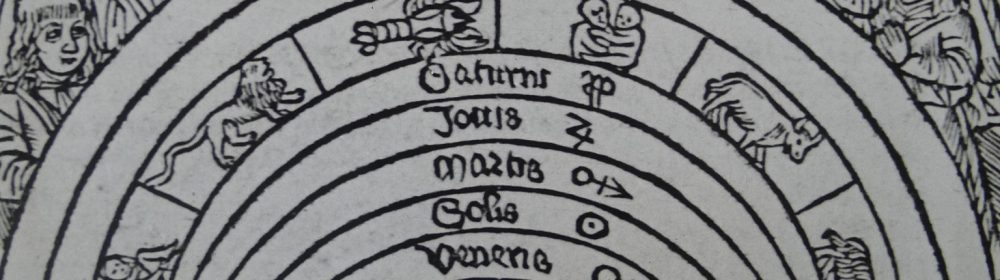 Saturni ♄
Jouis ♃
Martis ♂
Solis ☉
Veneris